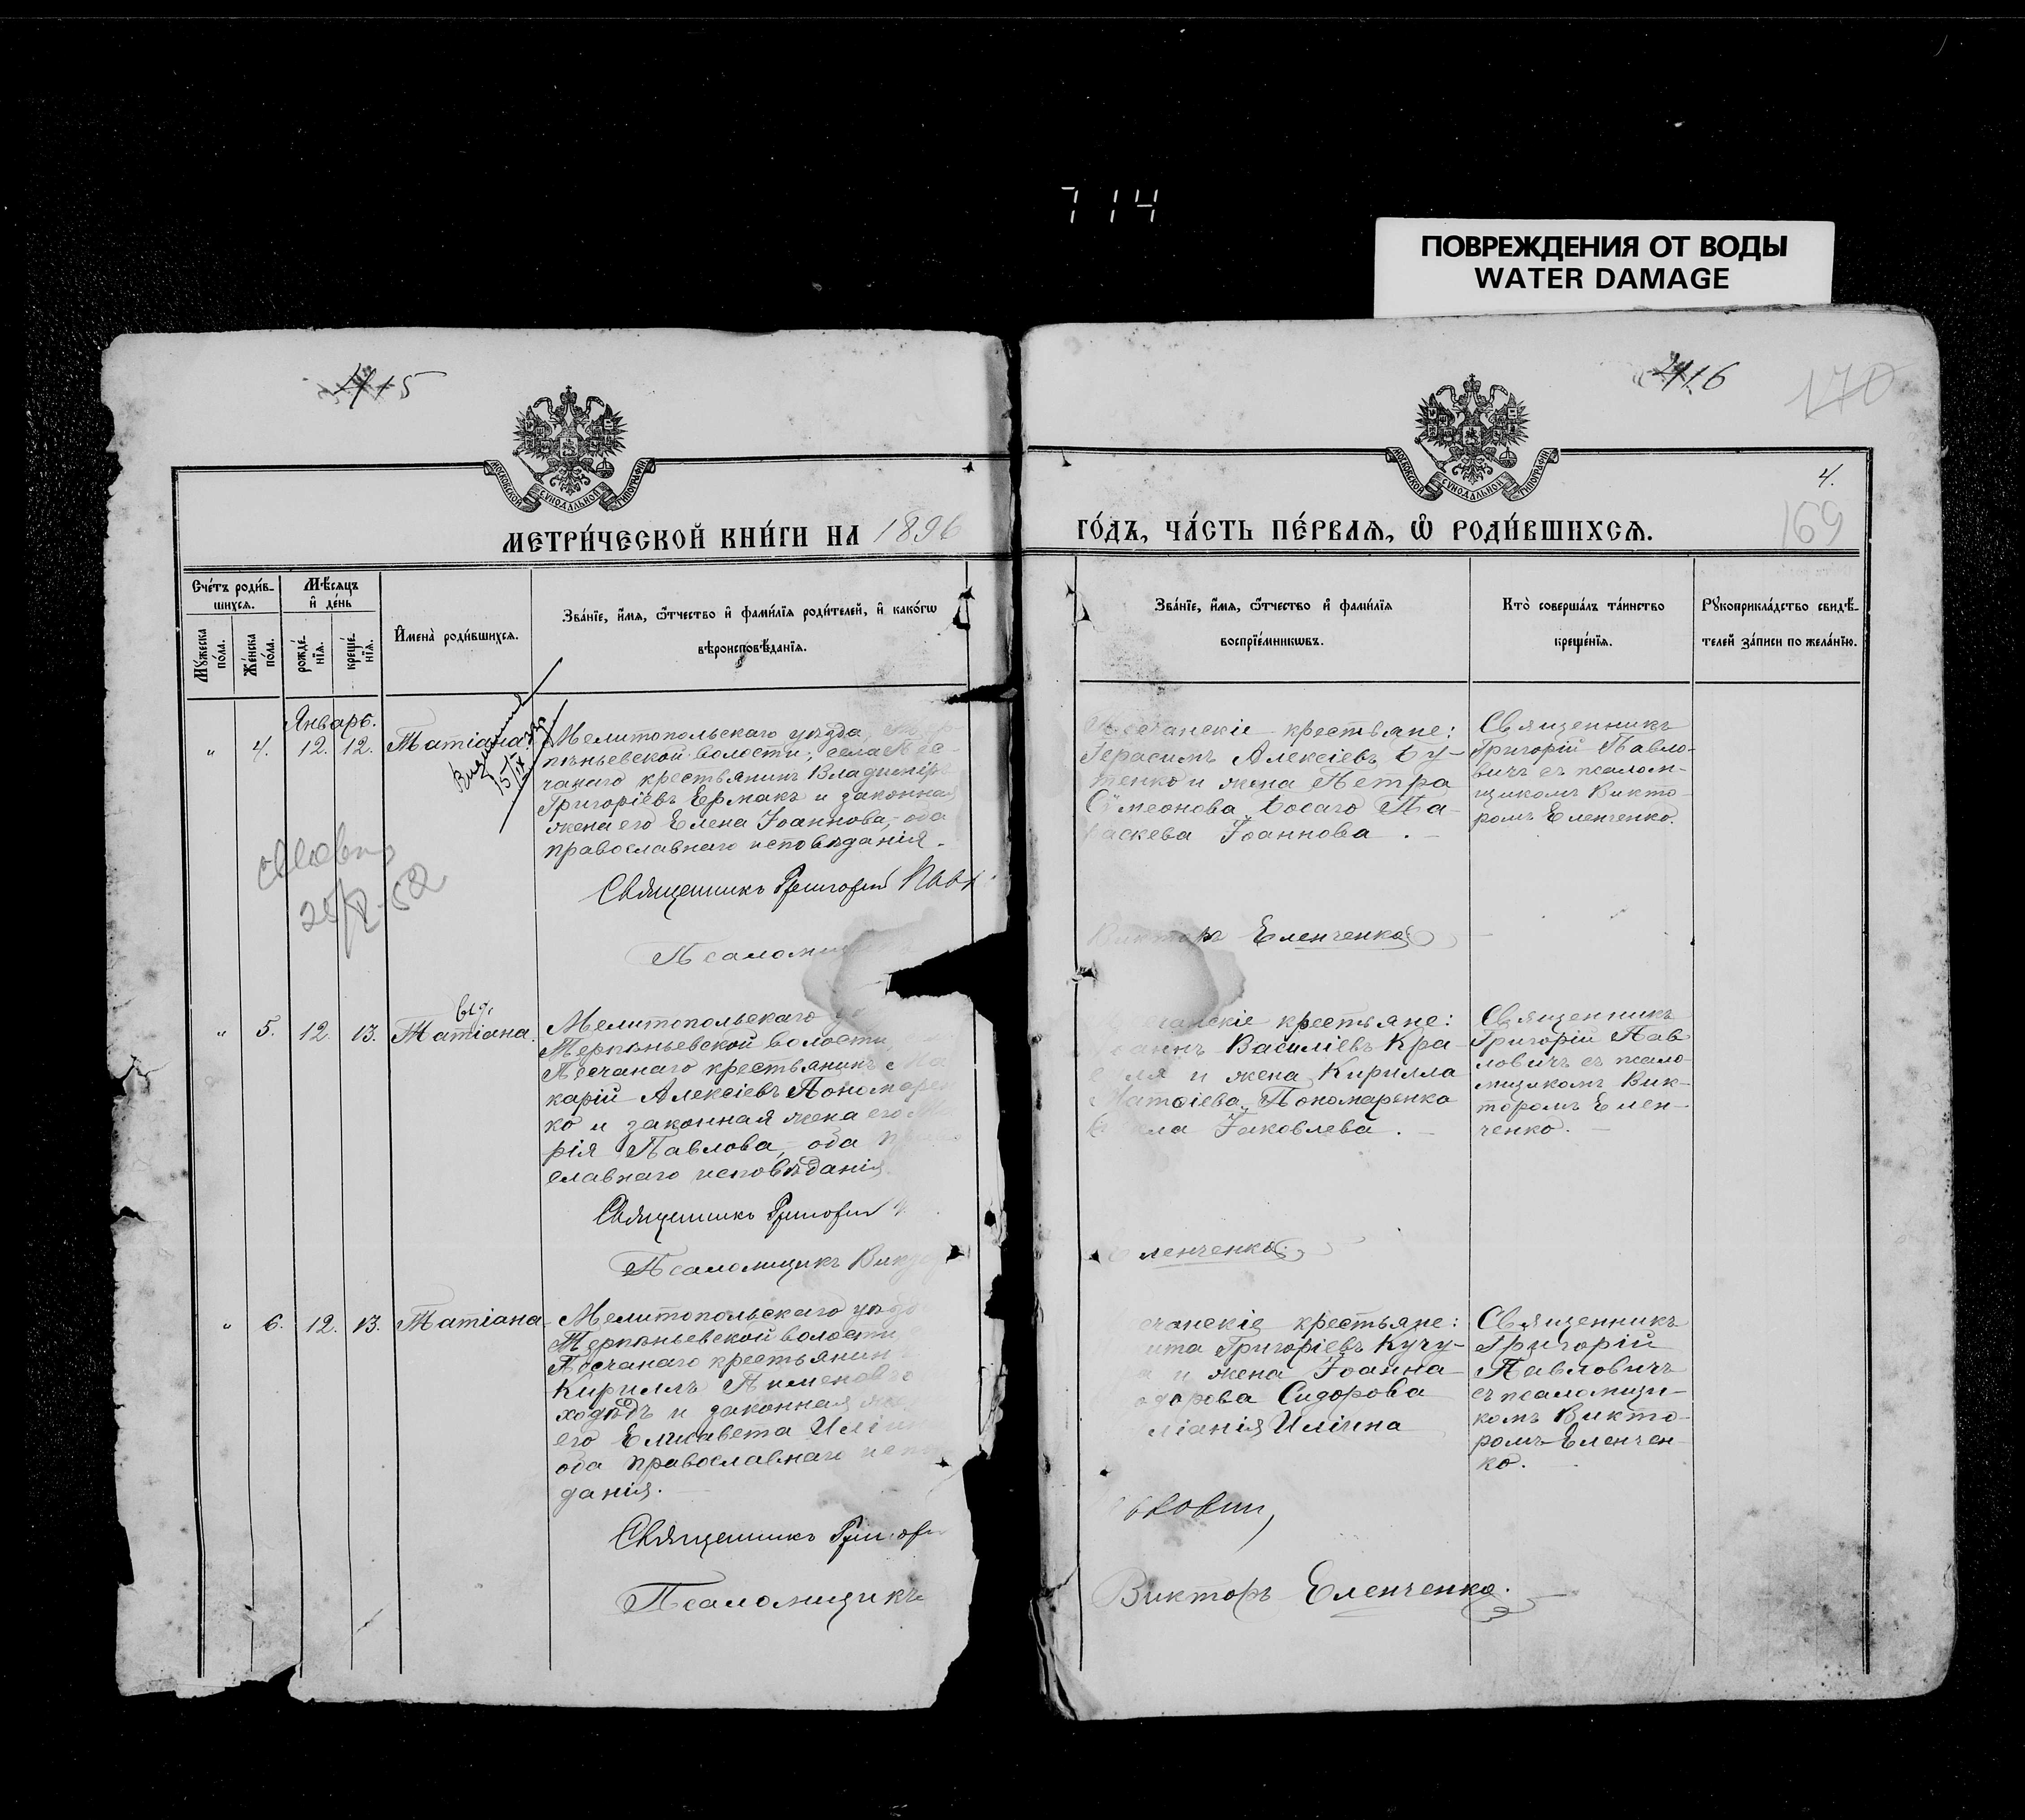 714
ПОВРЕЖДЕНИЯ ОТ ВОДЫ
WATER DAMAGE
15
16
170
МОСКОВСКОЙ СѴНОДАЛЬНОЙ ТИПОГРАФІИ
МОСКОВСКОЙ СѴНОДАЛЬНОЙ ТИПОГРАФІИ
4.
169
МЕТРИ́ЧЕСКОЙ КНИ́ГИ НА 1896
ГО́ДЪ, ЧА́СТЬ ПЕ́РВАѦ, Ѡ҆ РОДИ́ВШИХСѦ.
Сче́тъ роди́в-
шихсѧ.
Мꙋ́жеска по́ла.
Же́нска по́ла.
Мѣ́сѧцъ
и҆ де́нь
рожде́-
нїѧ.
креще́-
нїѧ.
И҆мена̀ роди́вшихсѧ.
Зва́нїе, и҆́мѧ, ѻ҆́тчество и҆ фами́лїѧ роди́телей, и҆ како́гѡ
вѣроисповѣ́данїѧ.
Зва́нїе, и҆́мѧ, ѻ҆́тчество и҆ фами́лїѧ
воспрїе́мникѡвъ.
Кто̀ соверша́лъ та́инство
креще́нїѧ.
Рꙋкоприкла́дство свидѣ́-
телей за́писи по жела́нїю.
Январь.
" 4. 12. 12. Татіана.
Мелитопольскаго уѣзда,
пѣньевской волости, села Пес-
чанаго крестьянинъ Владиміръ
Григоріевъ Ермакъ и законная
жена его Елена Іоаннова, – оба
православнаго исповѣданія.
Священникъ Григорій Павл
Псаломщикъ
Песчанскіе крестьяне:
Герасимъ Алексіевъ Бу-
тенко и жена Петра
Сѵмеонова Босаго Па-
раскева Іоаннова.
Викторъ Еленченко
Священникъ
Григорій Павло-
вичъ съ псалом-
щикомъ Викто-
ромъ Еленченко.
15/IX
выд.
" 5. 12. 13. Татіана.
Мелитопольскаго
Терпѣньевской волости,
Песчанаго крестьянинъ Ма
карій Алексіевъ Пономарен
ко и законная жена его Ма
рія Павлова, – оба право
славнаго исповѣданія.
Священникъ Григорій
Псаломщикъ Викто
чанскіе крестьяне:
Іоаннъ Василіевъ Кра-
ля и жена Кирилла
Матѳіева Пономаренко
ла Іаковлева.
Еленченко
Священникъ
Григорій Пав
ловичъ съ псало
мщикомъ Вик-
торомъ Елен-
ченко.
" 6. 12. 13. Татіана
Мелитопольскаго уѣзд
Терпѣньевской волости
Песчанаго крестьянин
Кириллъ Пименовъ
ходѣдъ и законная же
его Елисавета Иліи
оба православнаго испо
данія.
Священникъ Григорі
Псаломщикъ
счанскіе крестьяне:
ита Григоріевъ Кучу-
а и жена Іоанна
одорова Сидорова
ліанія Иліина
вловичъ
Викторъ Еленченко.
Священникъ
Григорій
Павловичъ
съ псаломщи-
комъ Викто-
ромъ Еленчен
ко.